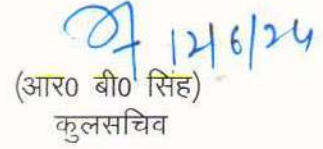 12/6/24
(आर0 बी0 सिंह)
कुलसचिव